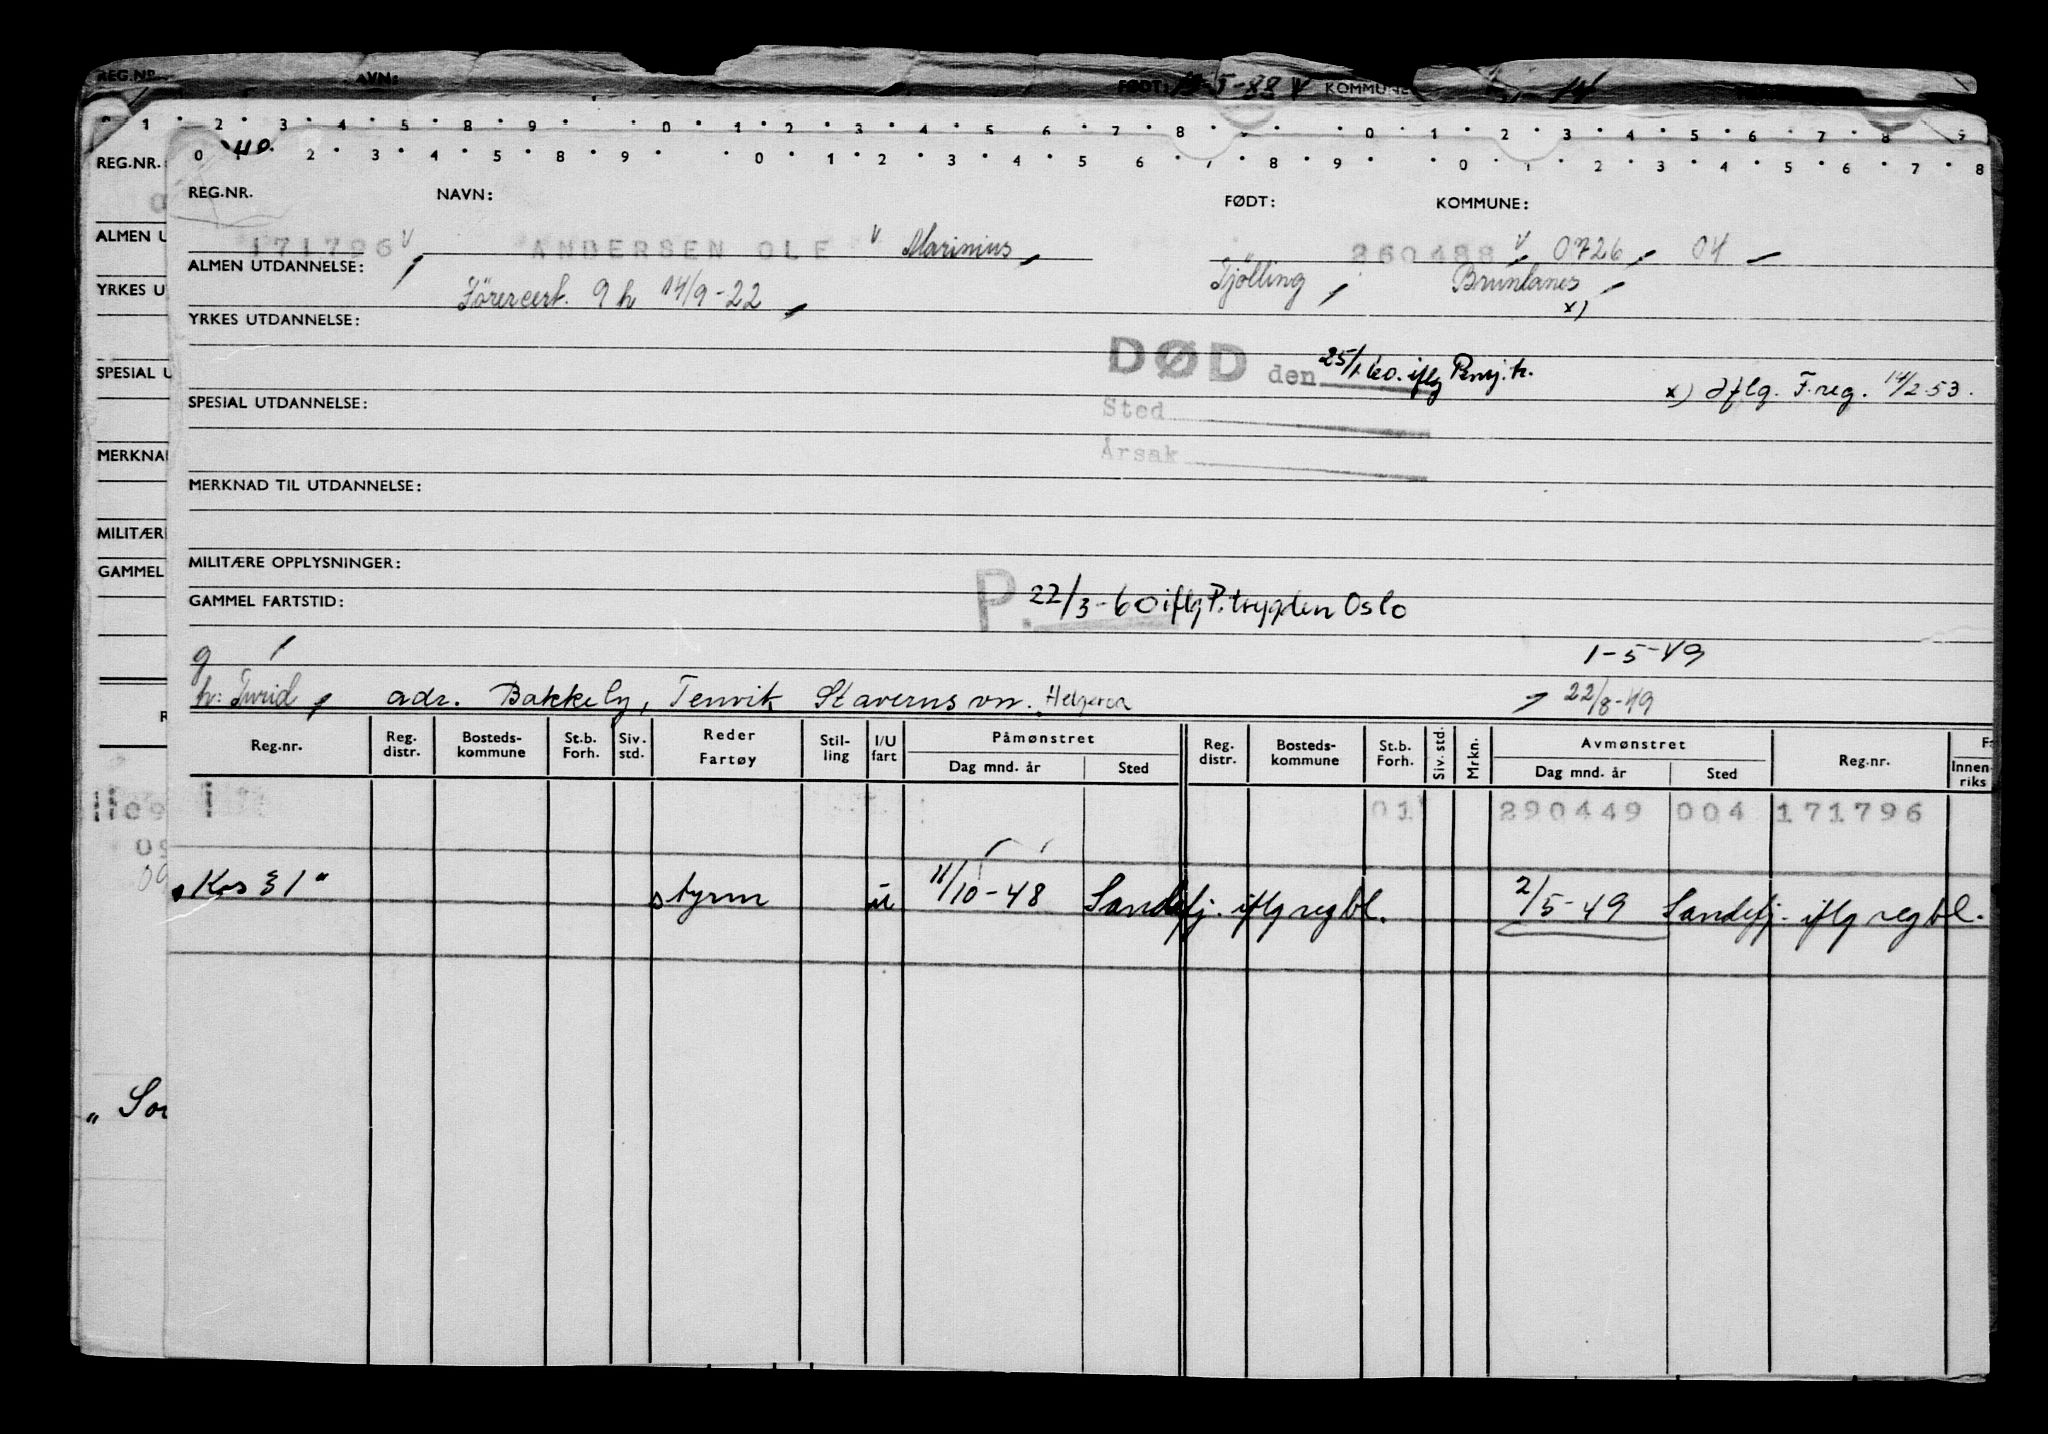 REG.NR. AVN: FØDT: 5-88 v KOMMUNE 14
0 1 2 3 4 5 8 9 0 1 2 3 4 5 6 7 8 0 1 2 3 4 5 6 7 8 9
REG.NR. 0 2 3 4 5 8 9 0 1 2 3 4 5 6 7 8 9 0 1 2 3 4 5 6 7 8
REG.NR. NAVN: FØDT: KOMMUNE:
ALMEN U 171796 v ANDERSEN OLE v Marinius 260488 v 0726 04
ALMEN UTDANNELSE: Førercert. 9 h 14/9-22 Tjølling Brunlanes x)
YRKES U
YRKES UTDANNELSE:
DØD den 25/1 60. iflg Pensj.tr.
SPESIAL U x) Iflg. F.reg. 14/2-53.
SPESIAL UTDANNELSE: Sted
MERKNA Årsak
MERKNAD TIL UTDANNELSE:
MILITÆR
MILITÆRE OPPLYSNINGER:
GAMMEL
GAMMEL FARTSTID: P. 22/3-60 iflg P.trygden Oslo
g 1-5-49
h: Turid, adr. Bakkely, Tenvik Staverns vn. Helgeroa 22/8-49
Reg.nr. Reg. distr. Bosteds- kommune St.b. Forh. Siv. std. Reder Fartøy Stil- ling I/U fart Påmønstret Dag mnd. år Sted Reg. distr. Bosteds- kommune St.b. Forh. Siv. std. Mrkn. Avmønstret Dag mnd. år Sted Reg.nr. Innen- riks
01 290449 004 171796
09
09
"Kos 31" styrm u 11/10-48 Sandefj. iflg regbl. 2/5-49 Sandefj. iflg regbl.